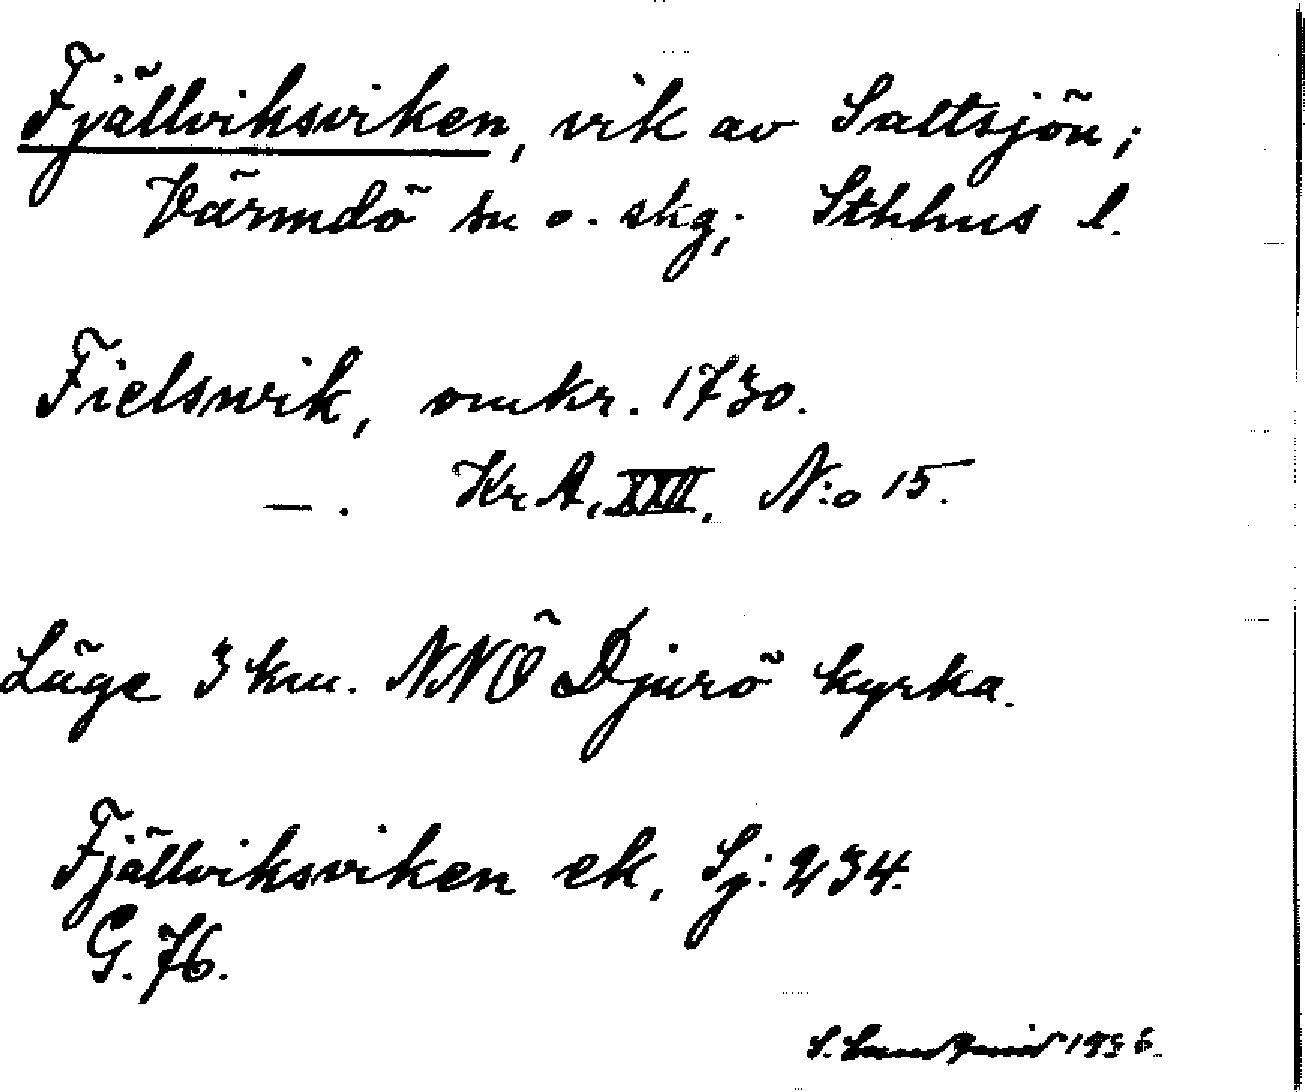 Fjällviksviken, vik av Saltsjön;
Värmdö sn o. skg; Sthlms l.
Fielswik, omkr. 1730.
—. Kr A, XXII, N:o 15.
Läge 3 km. NNÖ Djurö kyrka.
Fjällviksviken ek. Sj: 234.
G. 76.
S. 1936.